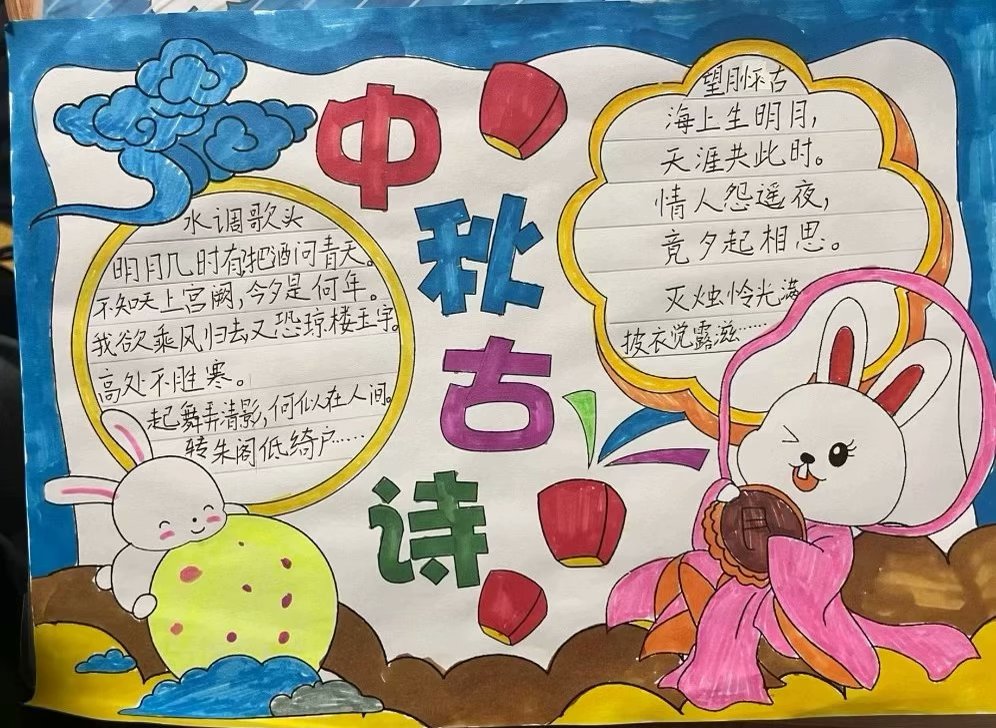 中秋古诗
水调歌头
明月几时有把酒问青天。
不知天上宫阙，今夕是何年。
我欲乘风归去又恐琼楼玉宇。
高处不胜寒。
起舞弄清影，何似在人间。
转朱阁低绮户……
望月怀古
海上生明月，
天涯共此时。
情人怨遥夜，
竟夕起相思。
灭烛怜光满
披衣觉露滋……
月